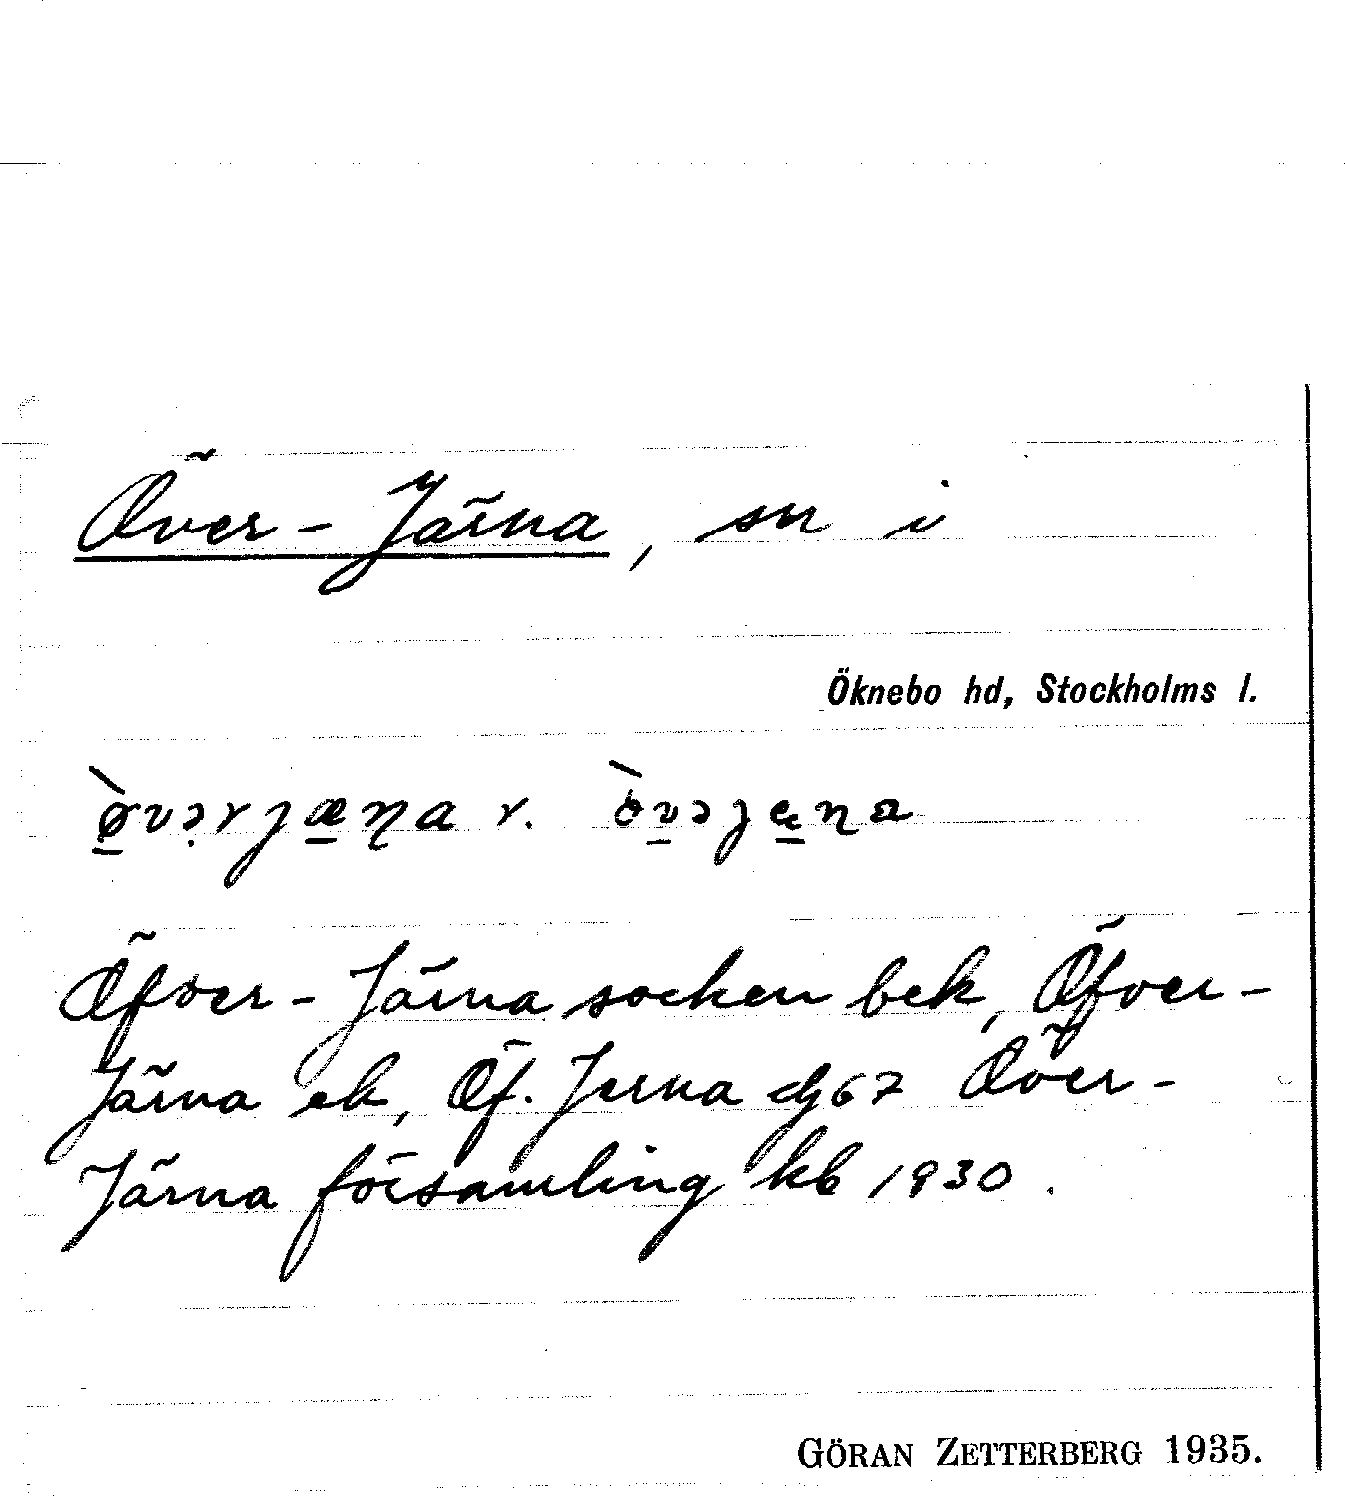 Över-Järna, sn i
Öknebo hd, Stockholms l.
ø̀vərjæɳa v. ò̀vəjæɳa
Öfver-Järna socken bek, Öfver-
Järna ek, Öf. Jerna dj67 Över-
Järna församling kb 1930.
GÖRAN ZETTERBERG 1935.